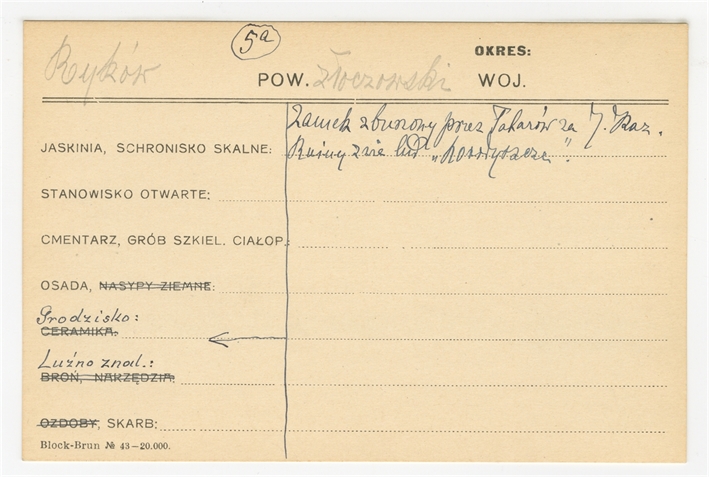 5a
OKRES:
Ryków POW. Złoczowski WOJ.
Zamek zburzony przez Tatarów za J. Kaz.
JASKINIA, SCHRONISKO SKALNE: Ruiny zwie lud
STANOWISKO OTWARTE:
CMENTARZ, GRÓB SZKIEL. CIAŁOP.:
OSADA, NASYPY ZIEMNE:
Grodzisko:
CERAMIKA.
Luźno znal.:
BROŃ, NARZĘDZIA:
OZDOBY, SKARB:
Block-Brun № 43-20.000.